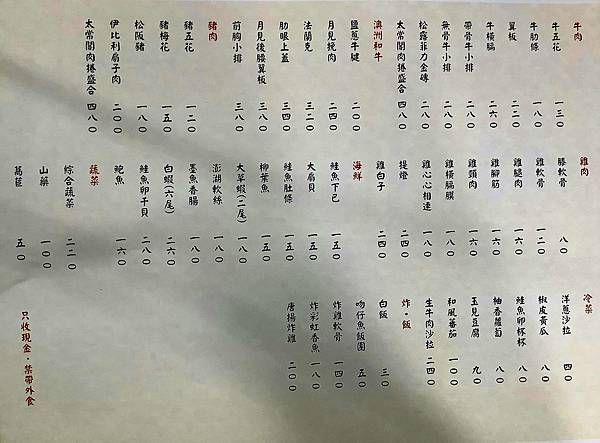 牛肉
牛五花 一三〇
牛肋條 一八〇
翼板 二二〇
牛橫膈 二六〇
帶骨牛小排 二八〇
無骨牛小排 二八〇
松露菲力金磚 二八〇
太常鬧肉捲盛合 四八〇
澳洲和牛
鹽蔥牛腱 二〇〇
月見挽肉 二四〇
法蘭克 三二〇
肋眼上蓋 三四〇
月見後腰翼板 三八〇
前胸小排 三八〇
豬肉
豬五花 一二〇
豬梅花 一五〇
松阪豬 一八〇
伊比利扇子肉 二〇〇
太常鬧肉捲盛合 四八〇
雞肉
膝軟骨 八〇
雞軟骨 一二〇
雞腿肉 一六〇
雞腳筋 一六〇
雞頸肉 一六〇
雞橫膈膜 一八〇
雞心心相連 一八〇
提燈 二四〇
雞白子 二四〇
海鮮
鮭魚下巴 一五〇
大扇貝 一五〇
鮭魚肚條 一五〇
柳葉魚 一五〇
大草蝦(二尾) 一八〇
澎湖軟絲 一八〇
墨魚香腸 一八〇
白蝦(六尾) 二六〇
鮭魚卵干貝 二八〇
鮑魚 一六〇
蔬菜
綜合蔬菜 二二〇
山藥 一〇〇
萵苣 五〇
冷菜
洋蔥沙拉 四〇
椒皮黃瓜 八〇
鮭魚卵杯杯 八〇
柚香蘿蔔 八〇
玉見豆腐 九〇
和風蕃茄 一〇〇
生牛肉沙拉 二四〇
炸・飯
白飯 三〇
吻仔魚飯團 五〇
炸雞軟骨 一四〇
炸彩虹香魚 一八〇
唐揚炸雞 二〇〇
只收現金・禁帶外食